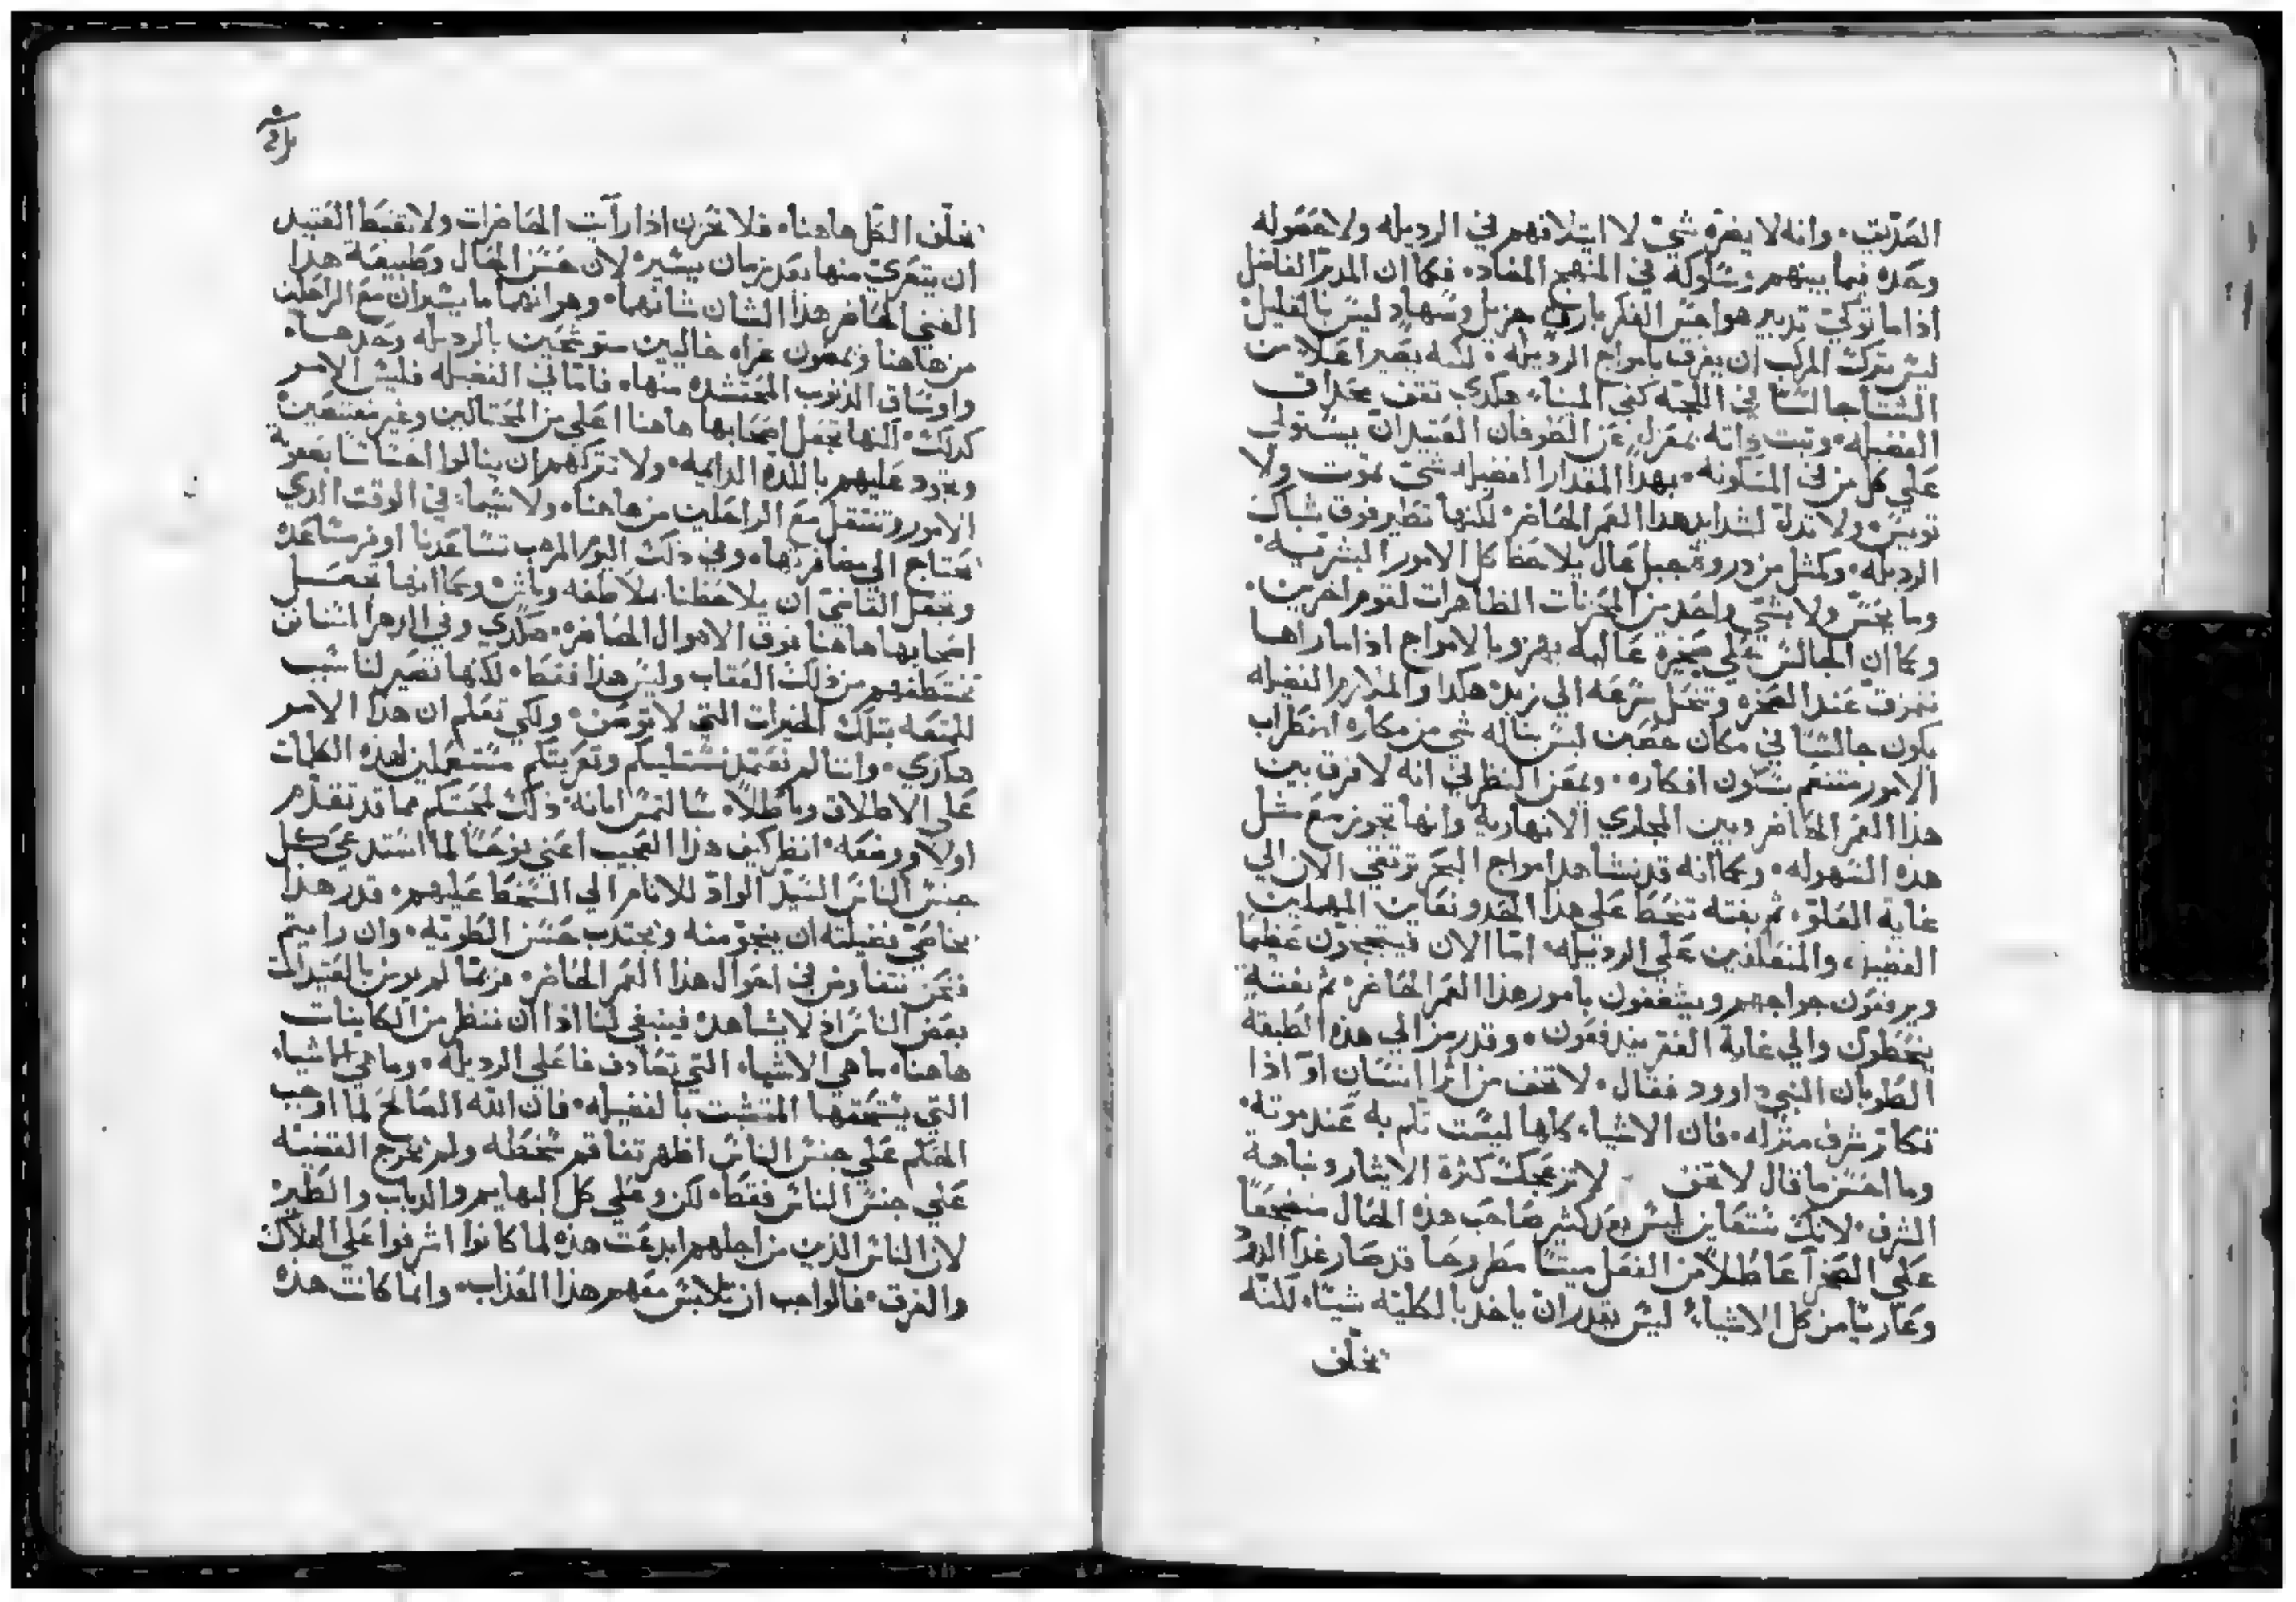 الصدّيق. وانه لا يضره شي لا ايتلافهم في الرديله ولا حصوله
وحده فيما بينهم وسلوكه في المنهج المضاد. فكما ان المدبر الفاضل
اذا ما توكي تدبير هواجس الفكر بارق جزيل وسهاد ليس بالقليل
ليس يترك المركب ان يغرق بامواج الرديله. لكنه يصير اعلا من
الشتا جالسًا في اللجه كفي الميناء. هكدي تقف بمجداف
الفضيله. وتبت داته بمعزل عن الطوفان العتيد ان يستولي
علي كل من في المسكونه. بهدا المقدار الفضيله شي يموت ولا
ولا تدل لشدايد هدا العمر الحاضر. لكنها تطير فوق شباك
الرديله. وكمثل من دروة جبل عال يلاحظ كل الامور البشريه.
وما يحس ولا بشي واحد من المحزنات الظاهرات لقوم اخرين.
وكما ان الجالس علي صخرة عاليه يهزو بالامواج اذا ما راها
تتمزق عند الصخره وتنحل سرعه الي زبد. هكدا والملازم الفضيله
يكون جالسًا في مكان حصين ليس يناله شي من مكاره اضطراب
الامور متنعم بسكون افكاره. ويمعن النظر في انه لا فرق بين
هذا العمر الحاضر وبين المجاري الانهاريه وانها تجوز مع مثل
هذه السهوله. وكما انه قد نشاهد امواج البحر ترتقي الان الي
غاية العلو. ثم بغته تنحط علي هذا الحد ونعاين المهملين
الفضيله والمنعطفين علي الرديله. امّا الان فيتبجحون عظيمًا
ويرفعون حواجبهم ويشغفون بامور هذا العمر الحاضر. ثم بغتة
ينحطون والي غاية الفقر يندفعون. وقد رمز الي هذه الطبقه
الطوبان النبي داوود فقال. لا تخف من اثرا انسان او اذا
تكاثر شرف منزله. فان الاشياء كلها ليست تلم به عند موته.
وما احسن ما قال لا تخف لا تزعجك كثرة الايثار ونباهة
الشرف. لانك ستعاين ليس بعد كثير صاحب هذه الحال منضجعًا
علي الصخر عاطلًا من الفعل ميتًا مطروحا قد صار غدا الدود
وعاريًا من كل الاشياء. ليس يقدر ان ياخد بالكليه شيئًا لكنه
يخلّف
يخلّف الكل هاهنا. فلا تحزن اذا رآيت الحاضرات ولا تغبط العتيد
ان يتعري منها بعد زمان يسير. لان حسن الحال وطبيعة هدا
الغني الحاضر هذا الشان شانهما. وهو انهما ما يسيران مع الراحلين
من هاهنا ويمضون عراه خاليين متوشحين بالرديله وحدها.
واوساق الذنوب المحتشده منها. فامّا في الفضيله فليس الامر
كدلك. لكنها تجعل اصحابها هاهنا اعلي من المحتالين وغير مقتنصين
وتجود عليهم باللدة الدايمه. ولا تتركهم ان ينالوا احساسًا بصعوبة
الامور وتنتقل مع الراحلين من هاهنا. ولا سيما في الوقت الدي
نحتاج الي مضافرتها. وفي دلك اليوم المرهب تساعدنا اوفر مساعده
وتجعل القاضي ان يلاحظنا ملاطفه وكما انها تجعل
اصحابها هاهنا فوق الاهوال الحاضره. هكدي وفي الدهر الاتي
تختطفهم من ذلك العقاب وليس هذا فقط. لكنها تصير لنا سبب
للمتعه بتلك الخيرات التي لا توصف. ولكي تعلم ان هدا الامر
هكدي. واننا لم نعتمد تسليتكم وتعزيتكم مستعملين هذه الكلمات
علي الاطلاق وباطلًا. سالتمس ابانة ذلك لمحبتكم مما قد تقدم
اولًا ووضعه. انظر كيف هذا العجيب اعني نوحًا لما استدعي كل
جنس الناس السيّد الوادّ للانام الي السخط عليهم. قدر هذا
بخاصّي فضيلته ان ينجو منه ويجتدب حسن الطويه. وان رايتم
فنحن نتفاوض في احوال هذا العمر الحاضر. فربما لم يومن بالعتيدات
بعض الناس اذ لا يشاهده فينبغي لنا اذا ان ننظر من الكاينات
هاهنا. ما هي الاشياء التي تصادف فاعلي الرديله. وما هي الاشياء
التي يستحقها المتشبت بالفضيله. فان الله الصالح لما اوجب
الحكم علي جنس الناس اظهر تفاقم سخطه ولم يخرج القضيه
علي جنس الناس فقط. لكن وعلي كل البهايم والدباب والطير
لان الناس الدين من اجلهم ابدعت هذه لما كانوا اشرفوا علي الهلاك
والغرق. فالواجب ان تلابس معهم هذا العذاب. وانما كانت هذه